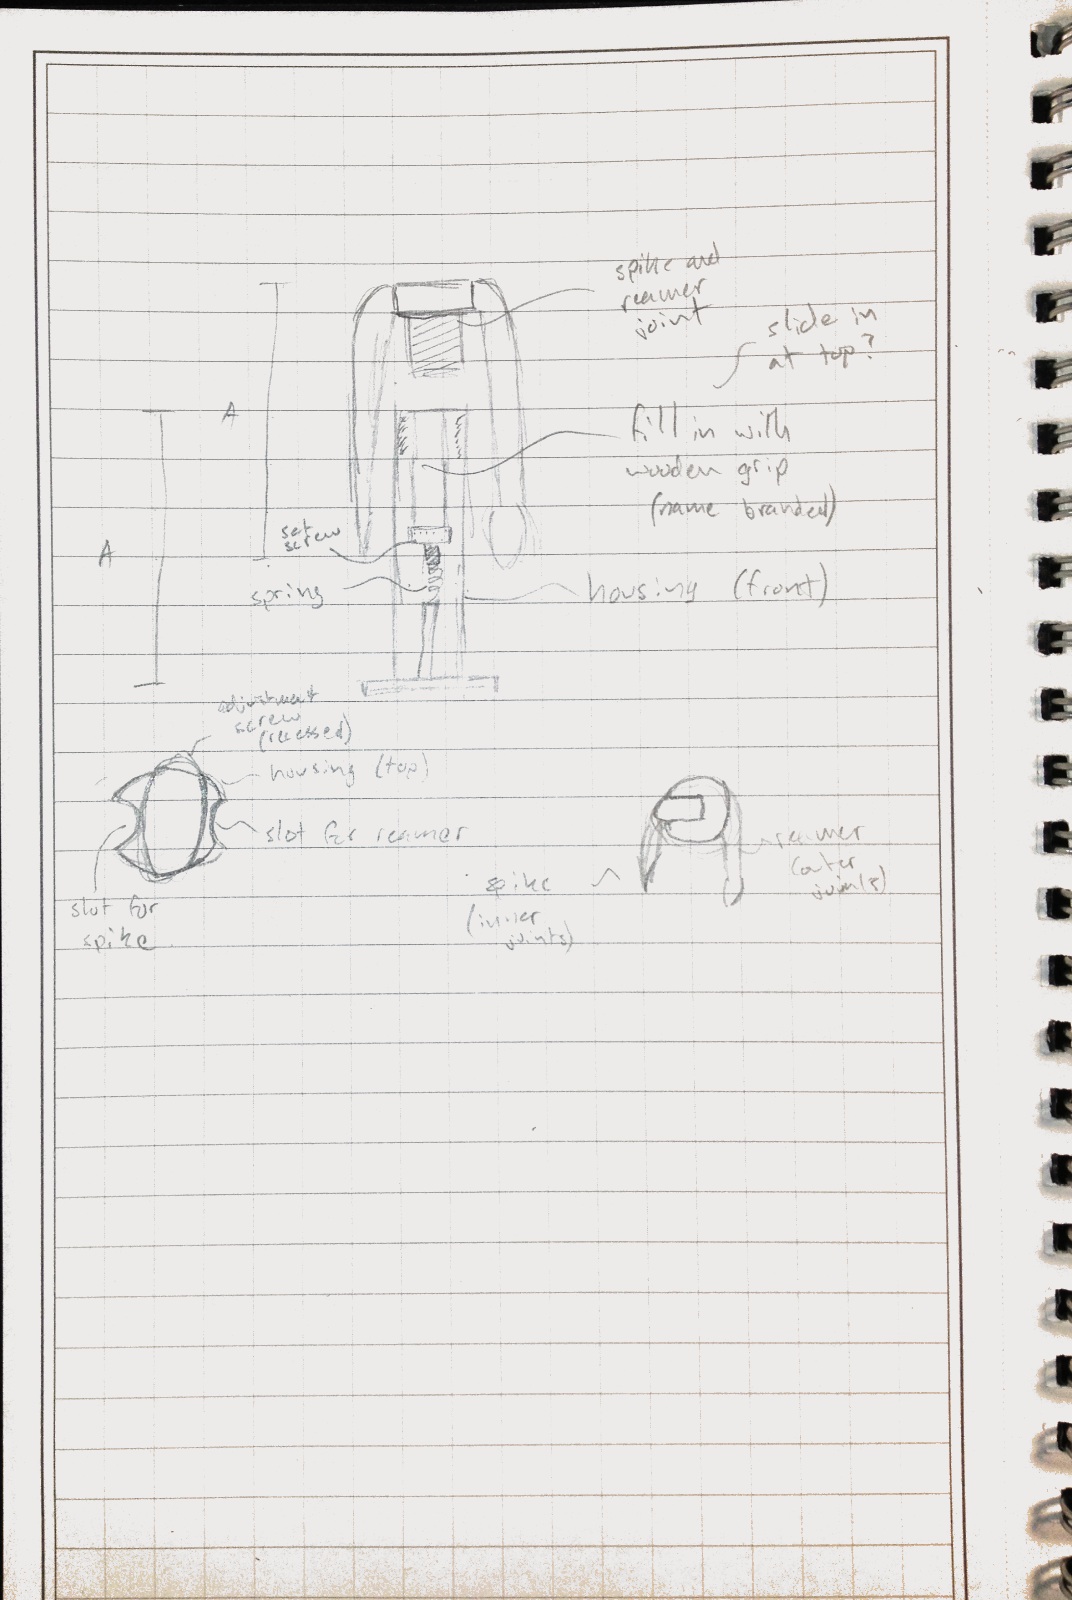 spike and
reamer
joint
slide in
at top?
A
fill in with
wooden grip
(name branded)
set
screw
A
spring
housing (front)
adjustment
screw
(recessed)
housing (top)
slot for reamer
reamer
(outer
joints)
spike
(inner
joints)
slot for
spike